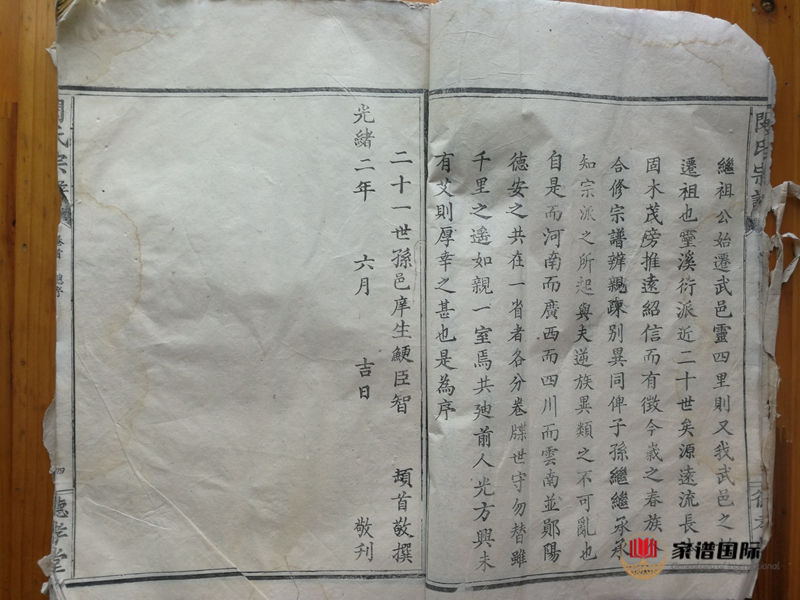 繼祖公始遷武邑靈四里則又我武邑之
遷祖也靈溪衍派近二十世矣源遠流長
固木茂傍推遠紹信而有徵今歲之春族
合修宗譜辨親疎別異同俾子孫繼繼承承
知宗派之所起與夫逆族異類之不可亂也
自是而河南而廣西而四川而雲南並鄖陽
德安之共在一省者各分卷牒世守勿替雖
千里之遙如親一室焉共廸前人光方興未
有艾則厚幸之甚也是為序
二十一世孫邑庠生鯁臣智 頓首敬撰
光緒二年 六月 吉日 敬刊
氏宗
四
德孝堂
家谱国际